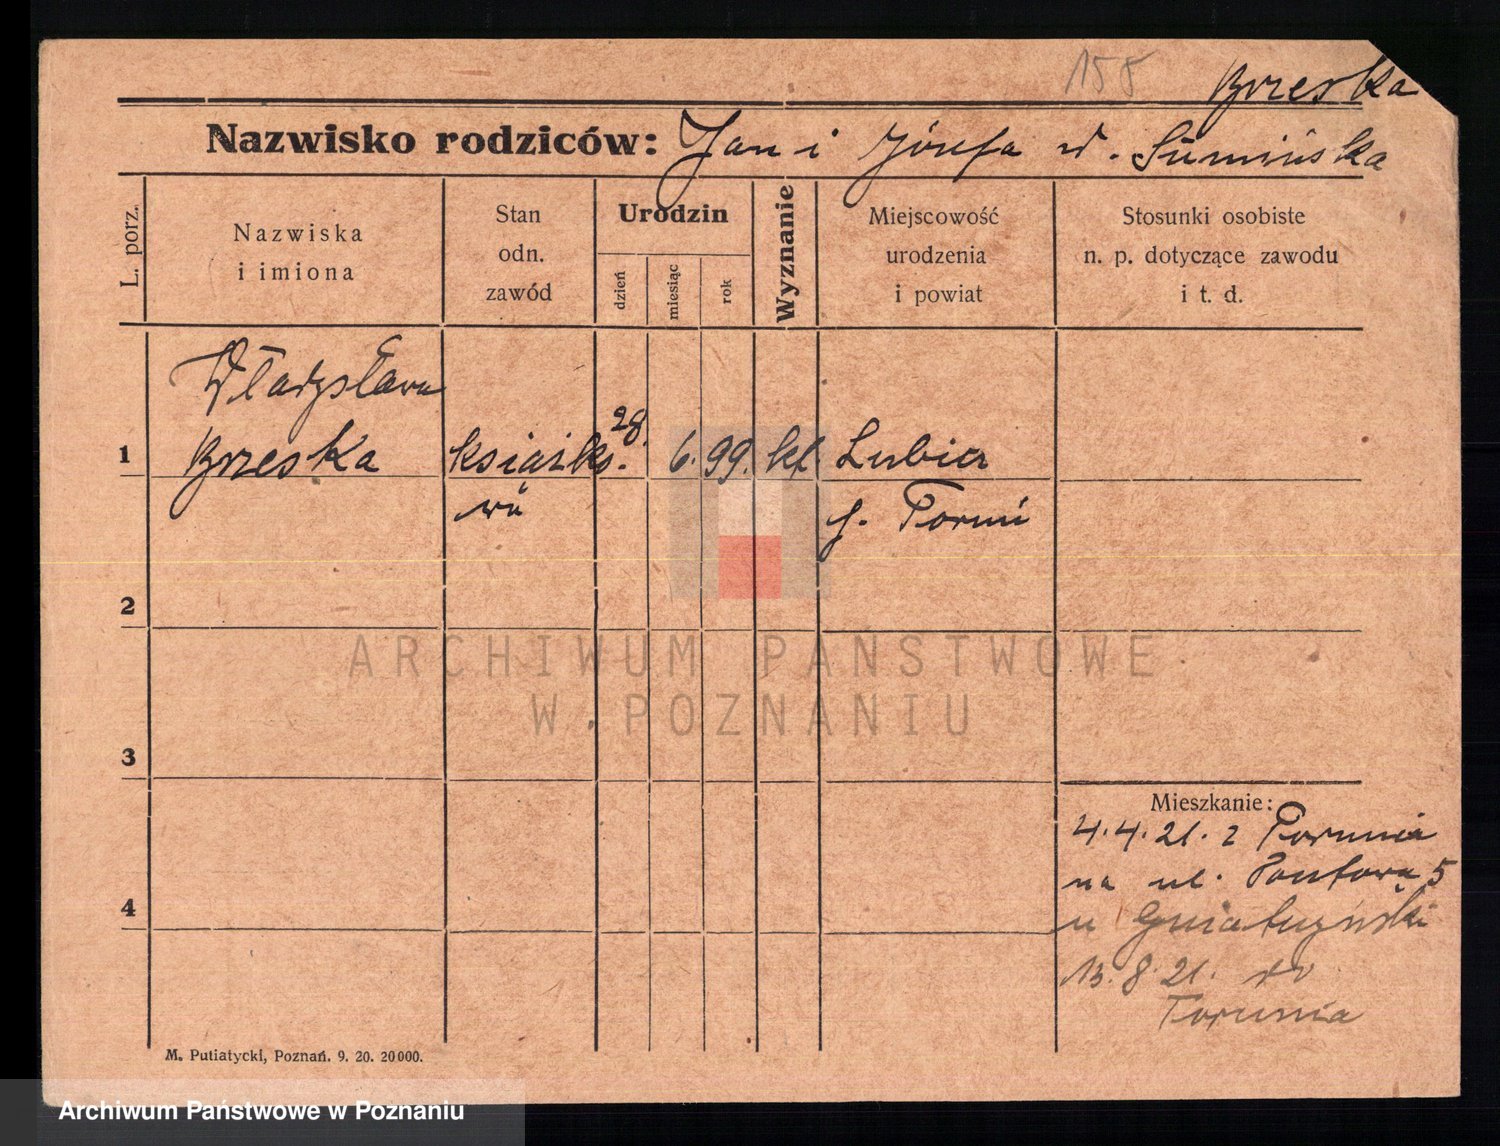 158
Brzeska
Nazwisko rodziców: Jan i Józefa d. Sumińska
L. porz.
Nazwiska
i imiona
Stan
odn.
zawód
Urodzin
dzień
miesiąc
rok
Wyznanie
Miejscowość
urodzenia
i powiat
Stosunki osobiste
n. p. dotyczące zawodu
i t. d.
Władysława
1 Brzeska książko. 28. 6. 99. kt. Lubicz
wa
p. Toruń
2
ARCHIWUM PAŃSTWOWE
W POZNANIU
3
Mieszkanie:
4.4.21. z Torunia
na ul. 5
4
u
13.8.21. do
Torunia
M. Putiatycki, Poznań. 9. 20. 20000.
Archiwum Państwowe w Poznaniu